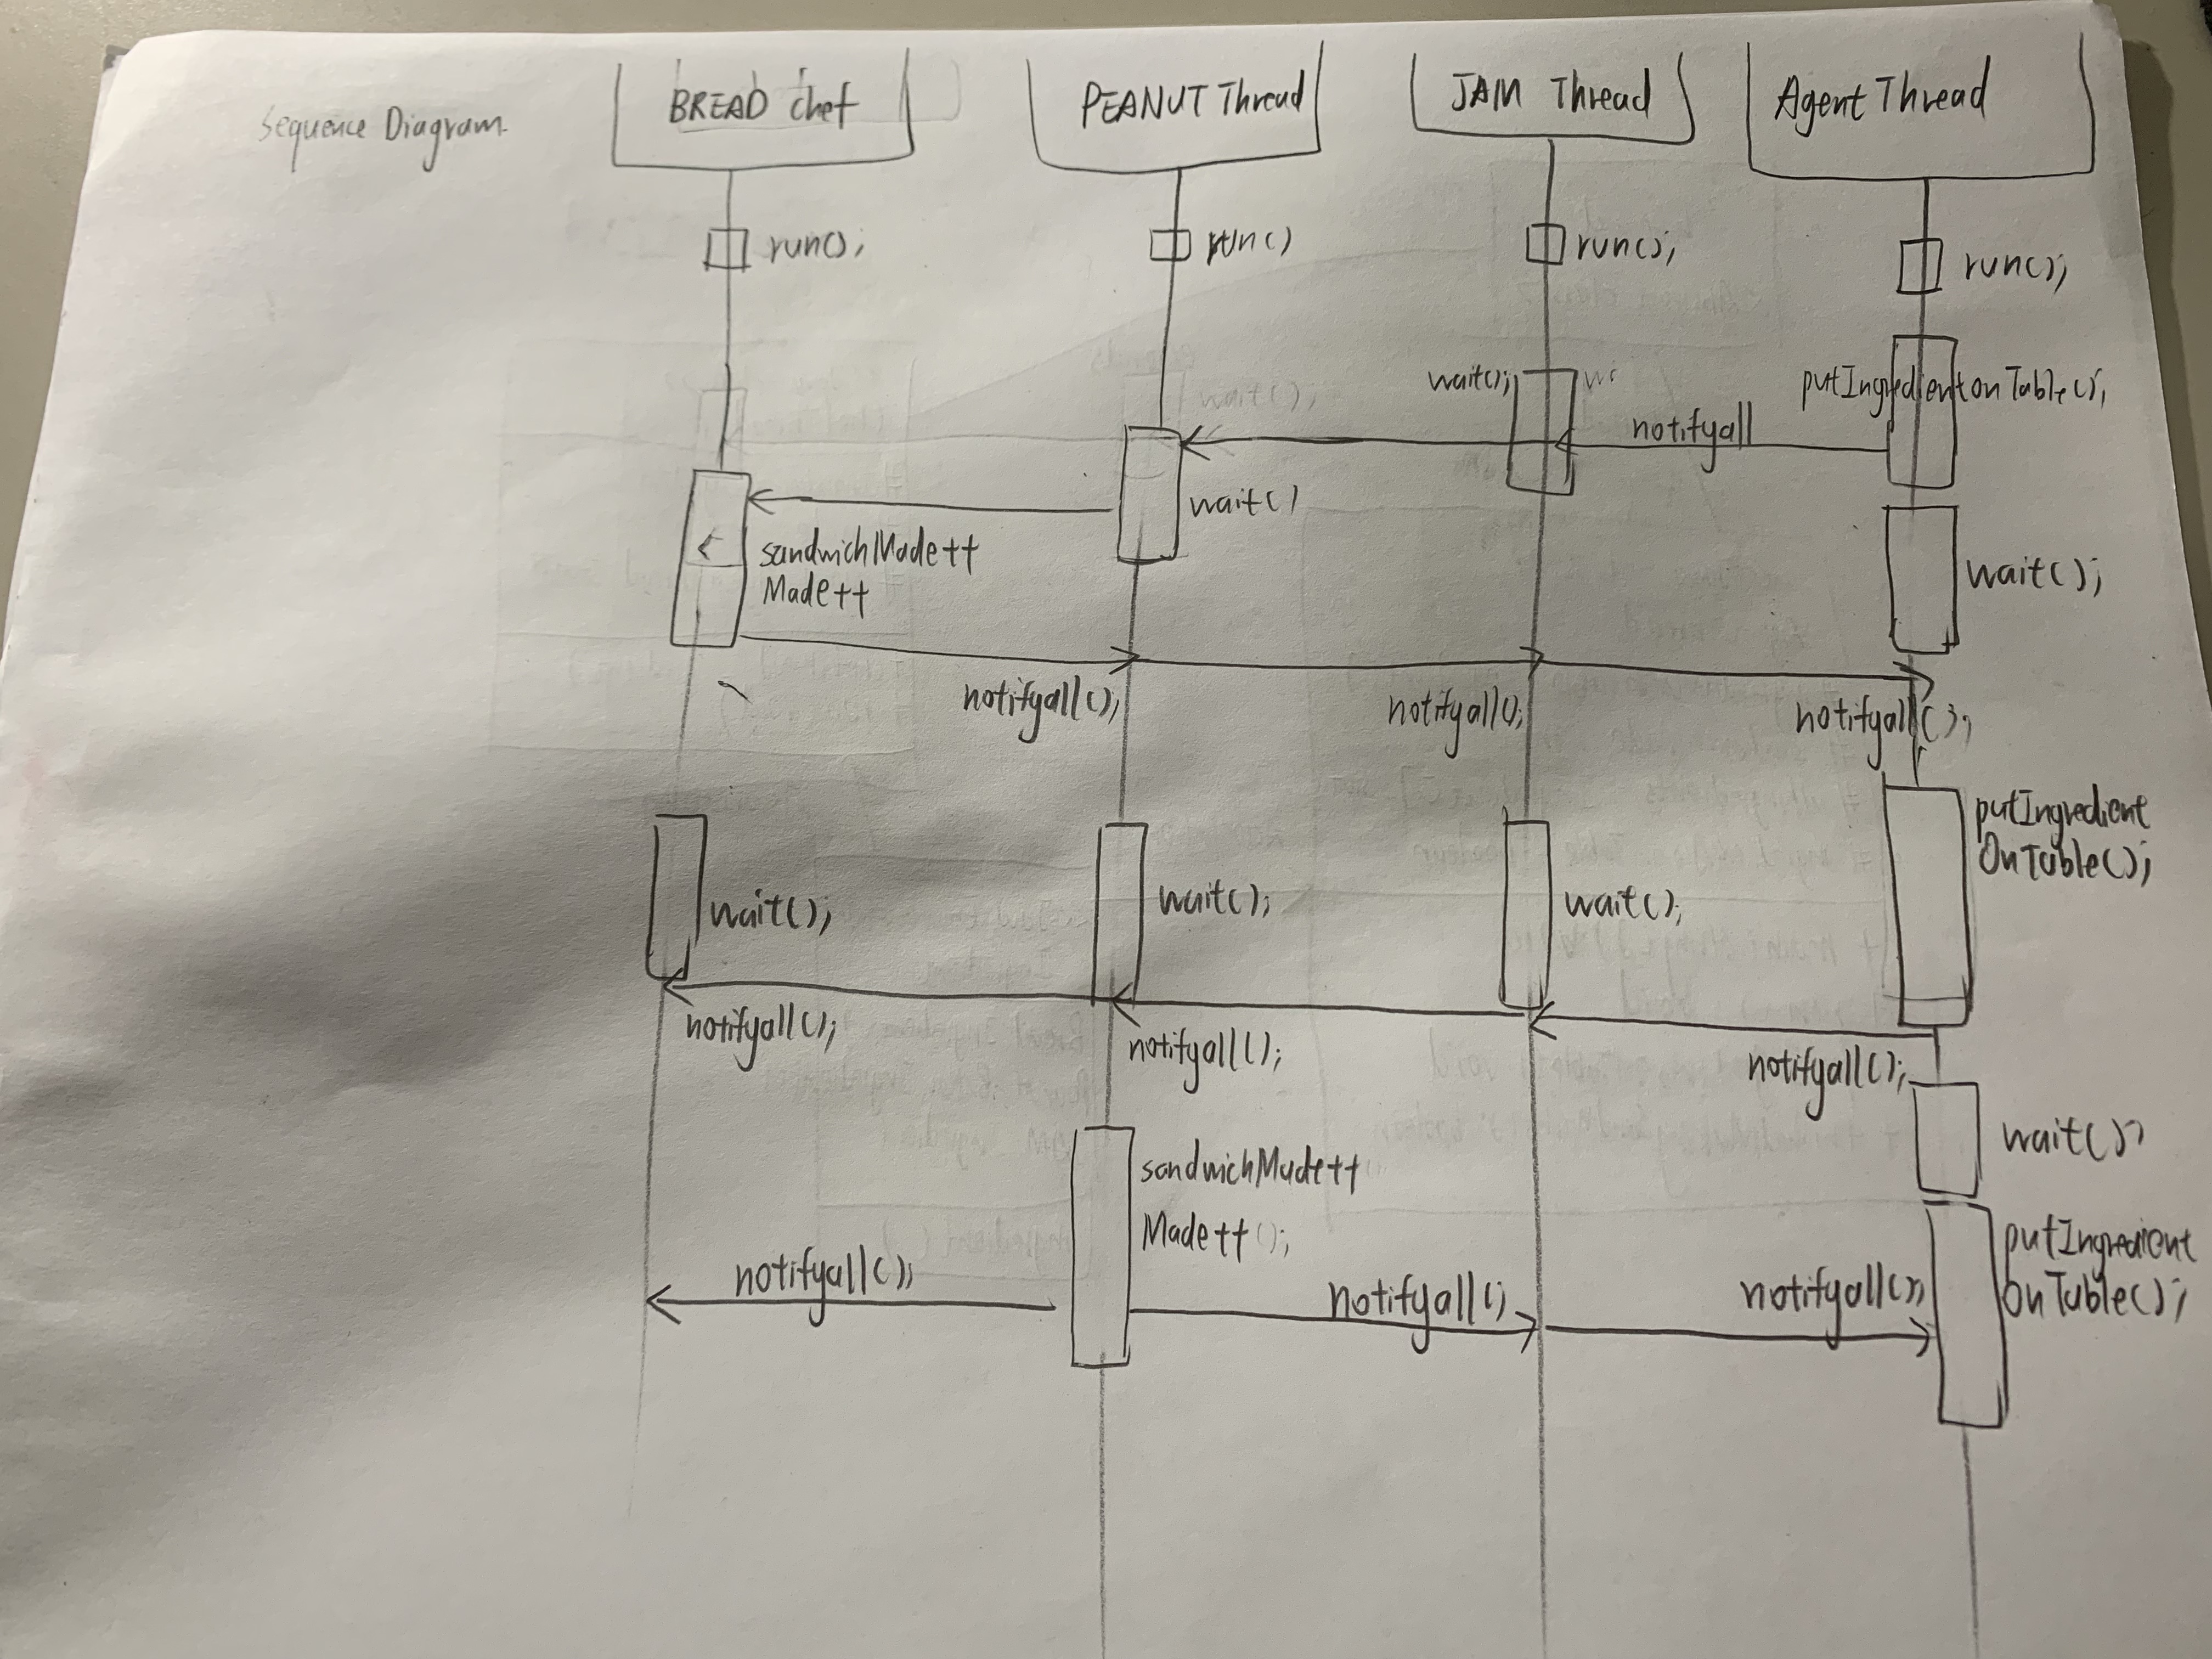 Sequence Diagram
BREAD chef
PEANUT Thread
JAM Thread
Agent Thread
run();
run()
run();
run();
wait();
putIngredientonTable();
notifyall
wait()
sandwichMade++
Made++
wait();
notifyall();
notifyall();
notifyall();
putIngredient
OnTable();
wait();
wait();
wait();
notifyall();
notifyall();
notifyall();
wait();
sandwichMade++
Made++();
putIngredient
OnTable();
notifyall();
notifyall();
notifyall();